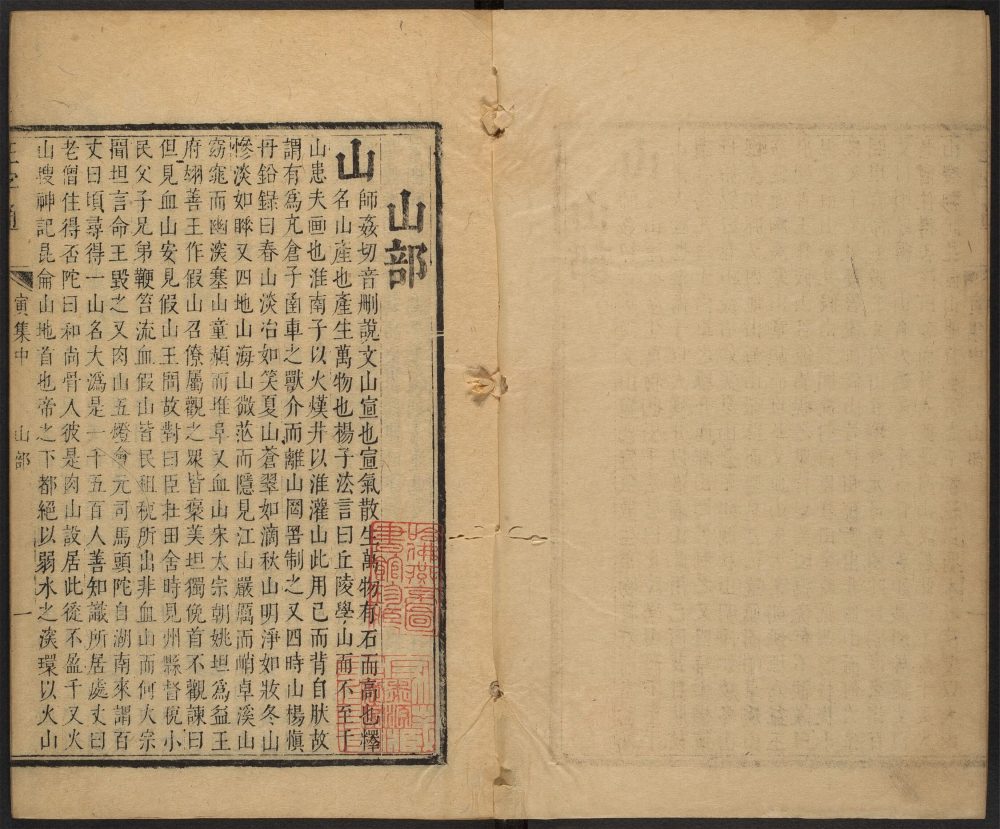 山部
山 師姦切音删說文山宣也宣氣散生萬物有石而高也釋
名山產也產生萬物也楊子法言曰丘陵學山而不至于
山患夫画也淮南子以火熯井以淮灌山此用己而背自肰故
謂有爲亢倉子圅車之獸介而離山罔罟制之又四時山楊愼
丹鉛錄曰春山淡冶如笑夏山蒼翠如滴秋山明淨如妝冬山
慘淡如睡又四地山海山微茫而隱見江山嚴厲而峭卓溪山
窈窕而幽深塞山童頳而堆阜又血山宋太宗朝姚坦爲益王
府翊善王作假山召僚屬觀之眾皆褒美坦獨俛首不觀諫曰
但見血山安見假山王問故對曰臣在田舍時見州縣督稅小
民父子兄弟鞭笞流血假山皆民租稅所出非血山而何大宗
聞坦言命王毀之又肉山五燈會元司馬頭陀自湖南來謂百
丈曰頃尋得一山名大潙是一千五百人善知識所居處丈曰
老僧住得否陀曰和尚骨人彼是肉山設居此徒不盈千又火
山搜神記昆侖山地首也帝之下都絕以弱水之深環以火山
寅集中 山部 一